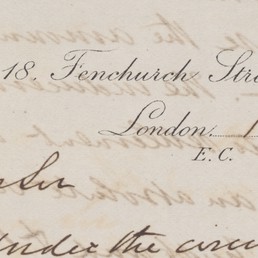 18. Fenchurch Stre
London. 1
E. C.
Sir
Under the circu